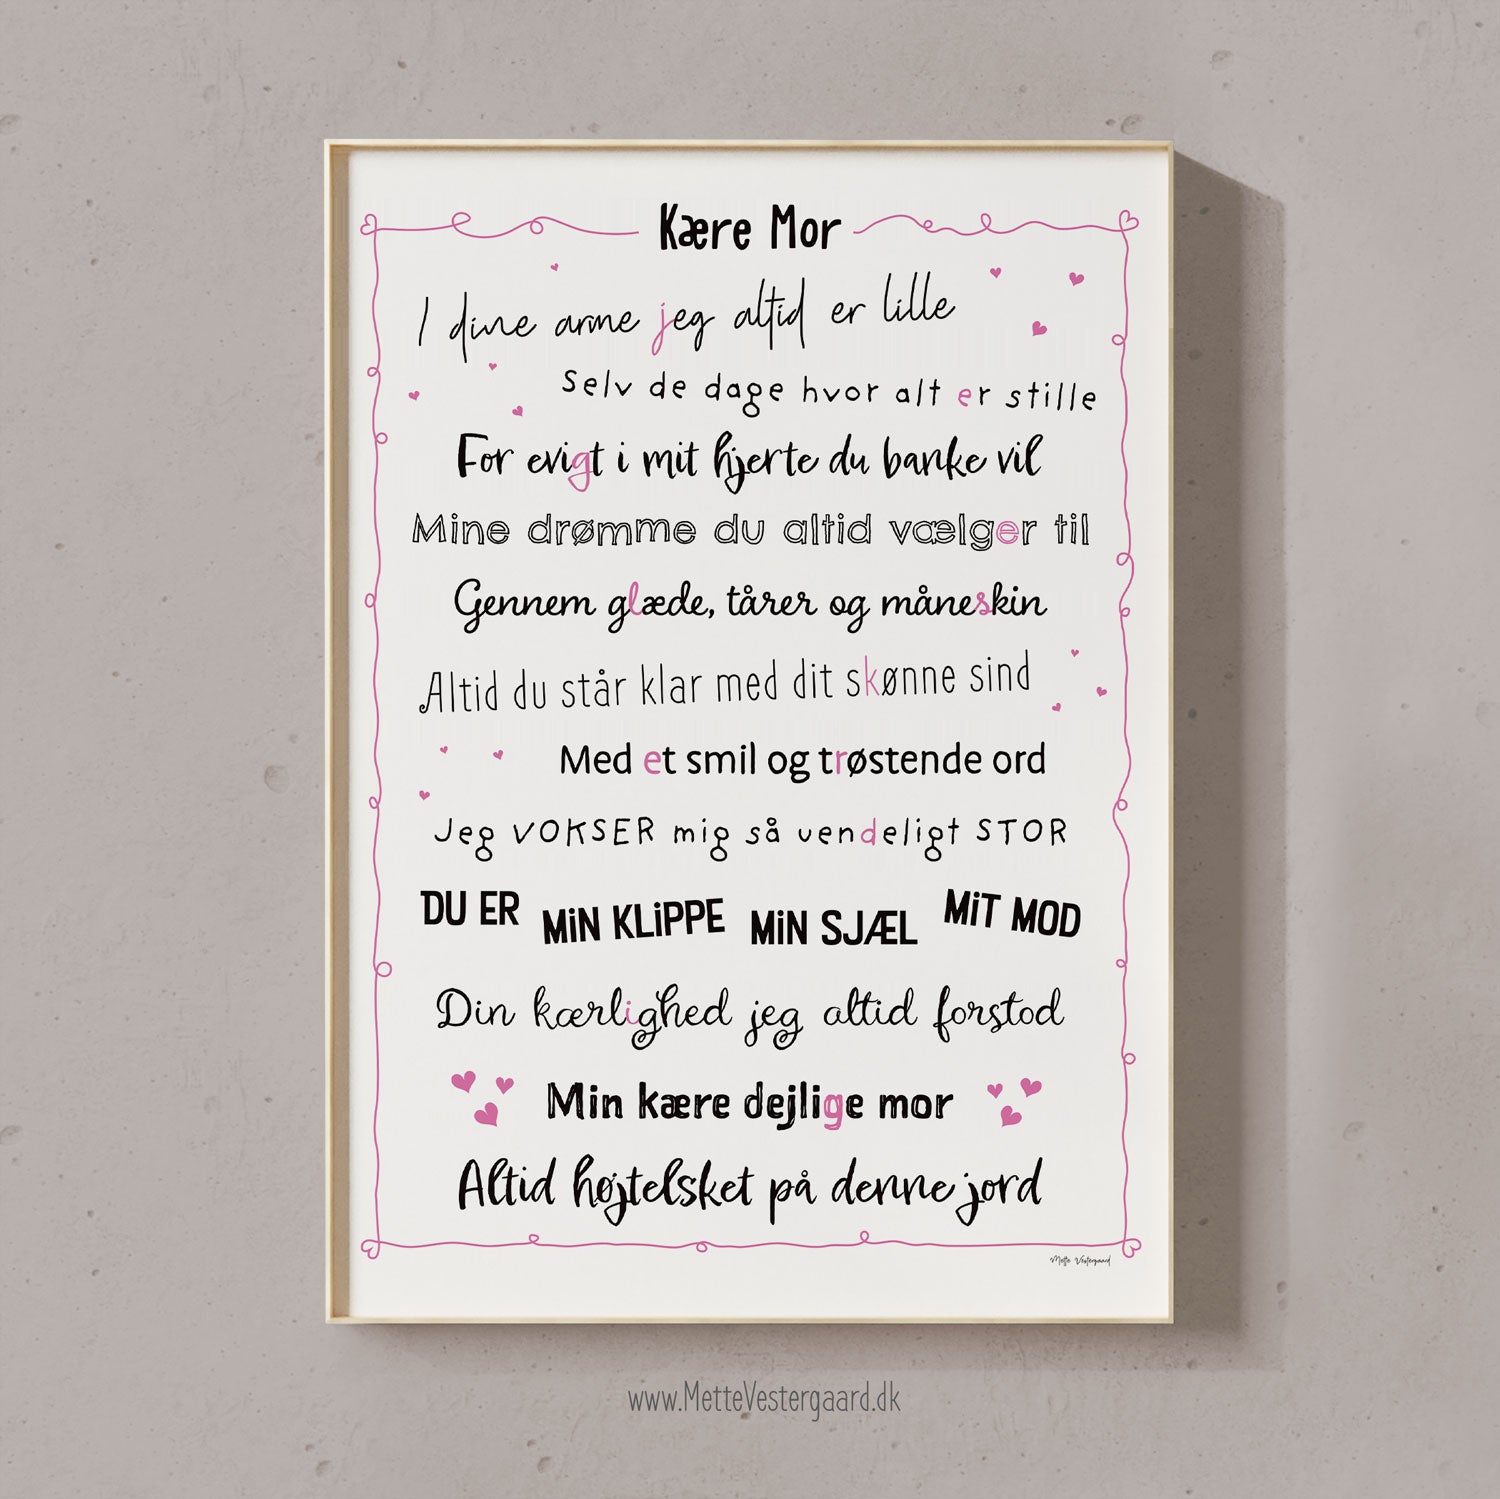 Kære Mor
I dine arme jeg altid er lille
Selv de dage hvor alt er stille
For evigt i mit hjerte du banke vil
Mine drømme du altid vælger til
Gennem glæde, tårer og måneskin
Altid du står klar med dit skønne sind
Med et smil og trøstende ord
Jeg VOKSER mig så uendeligt STOR
DU ER MiN KLiPPE MiN SJÆL MiT MOD
Din kærlighed jeg altid forstod
Min kære dejlige mor
Altid højtelsket på denne jord
Mette Vestergaard
www.MetteVestergaard.dk